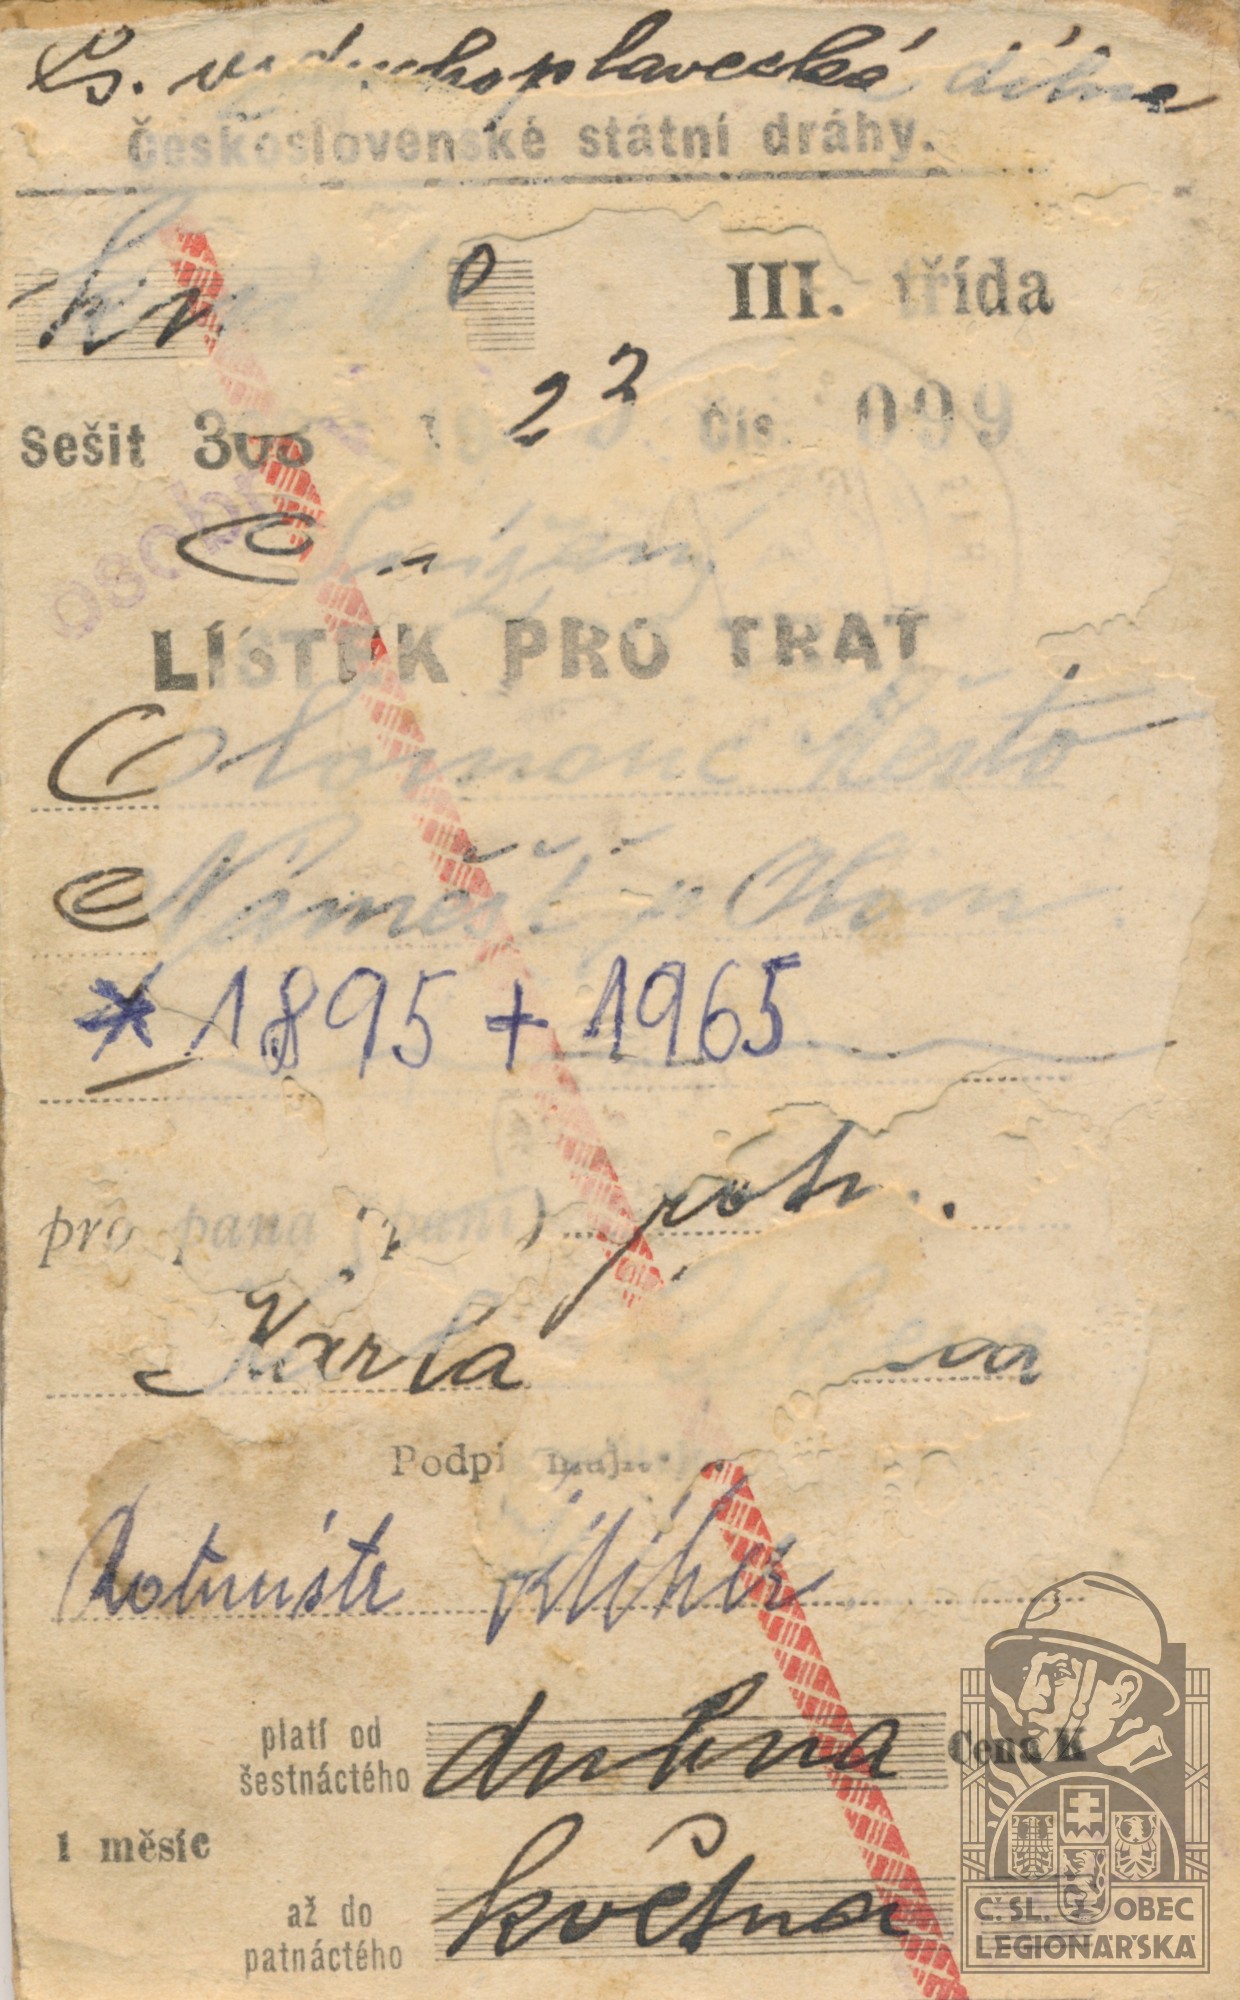 Čs. vzduchoplavecká dílna
Československé státní dráhy.
III. třída
Sešit 308 Čís. 099
23
osob
Snížený
LÍSTEK PRO TRAŤ
Olomouc město
Náměšť n Olom.
* 1895 + 1965
pro pana (paní) rotm.
Karla
Podpi
Rotmistr
platí od
šestnáctého dubna Cena K
1 měsíc
až do
patnáctého května
Č.SL. OBEC
LEGIONÁŘSKÁ